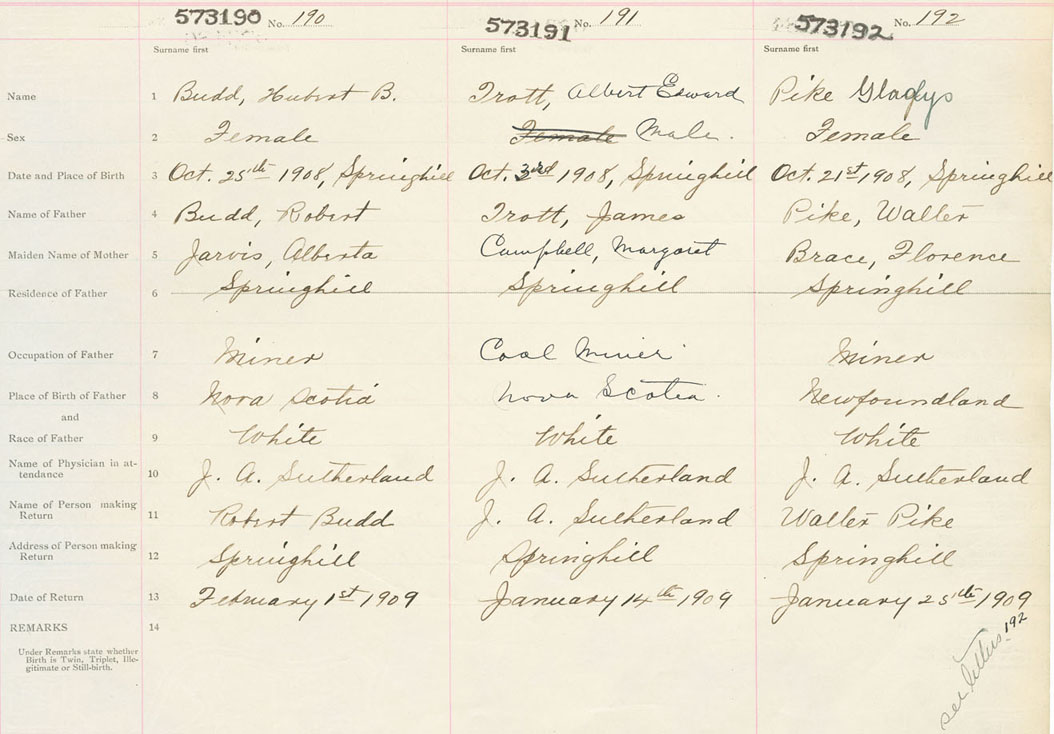 573190 No. 190 573191 No. 191 573192 No. 192
Surname first Surname first Surname first
Name 1 Budd, Hubert B. Trott, Albert Edward Pike Gladys
Sex 2 Female Female Male. Female
Date and Place of Birth 3 Oct. 25th 1908, Springhill Oct. 3rd 1908, Springhill Oct. 21st 1908, Springhill
Name of Father 4 Budd, Robert Trott, James Pike, Walter
Maiden Name of Mother 5 Jarvis, Alberta Campbell, Margaret Brace, Florence
Residence of Father 6 Springhill Springhill Springhill
Occupation of Father 7 Miner Coal Miner Miner
Place of Birth of Father 8 Nova Scotia Nova Scotia. Newfoundland
and
Race of Father 9 White White White
Name of Physician in at-
tendance 10 J. A. Sutherland J. A. Sutherland J. A. Sutherland
Name of Person making
Return 11 Robert Budd J. A. Sutherland Walter Pike
Address of Person making
Return 12 Springhill Springhill Springhill
Date of Return 13 February 1st 1909 January 14th 1909 January 25th 1909
REMARKS 14
Under Remarks state whether
Birth is Twin, Triplet, Ille-
gitimate or Still-birth.
see letters 192